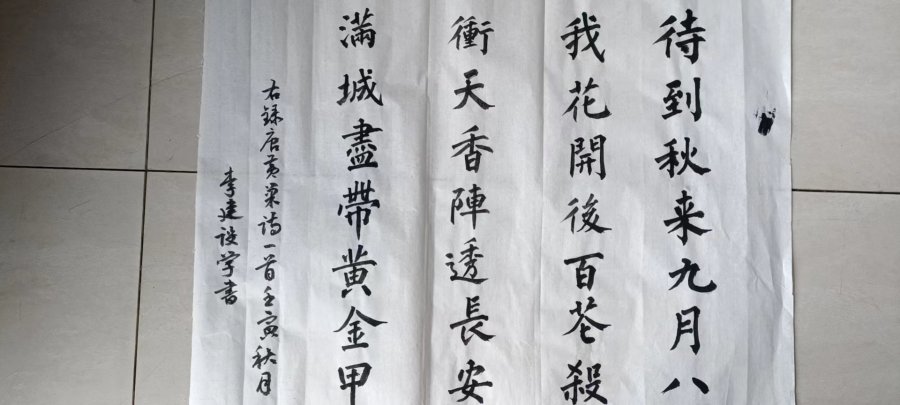 待到秋来九月八
我花開後百花殺
衝天香陣透長安
滿城盡帶黄金甲
右録唐黄巢诗一首壬寅秋月
李建设学書